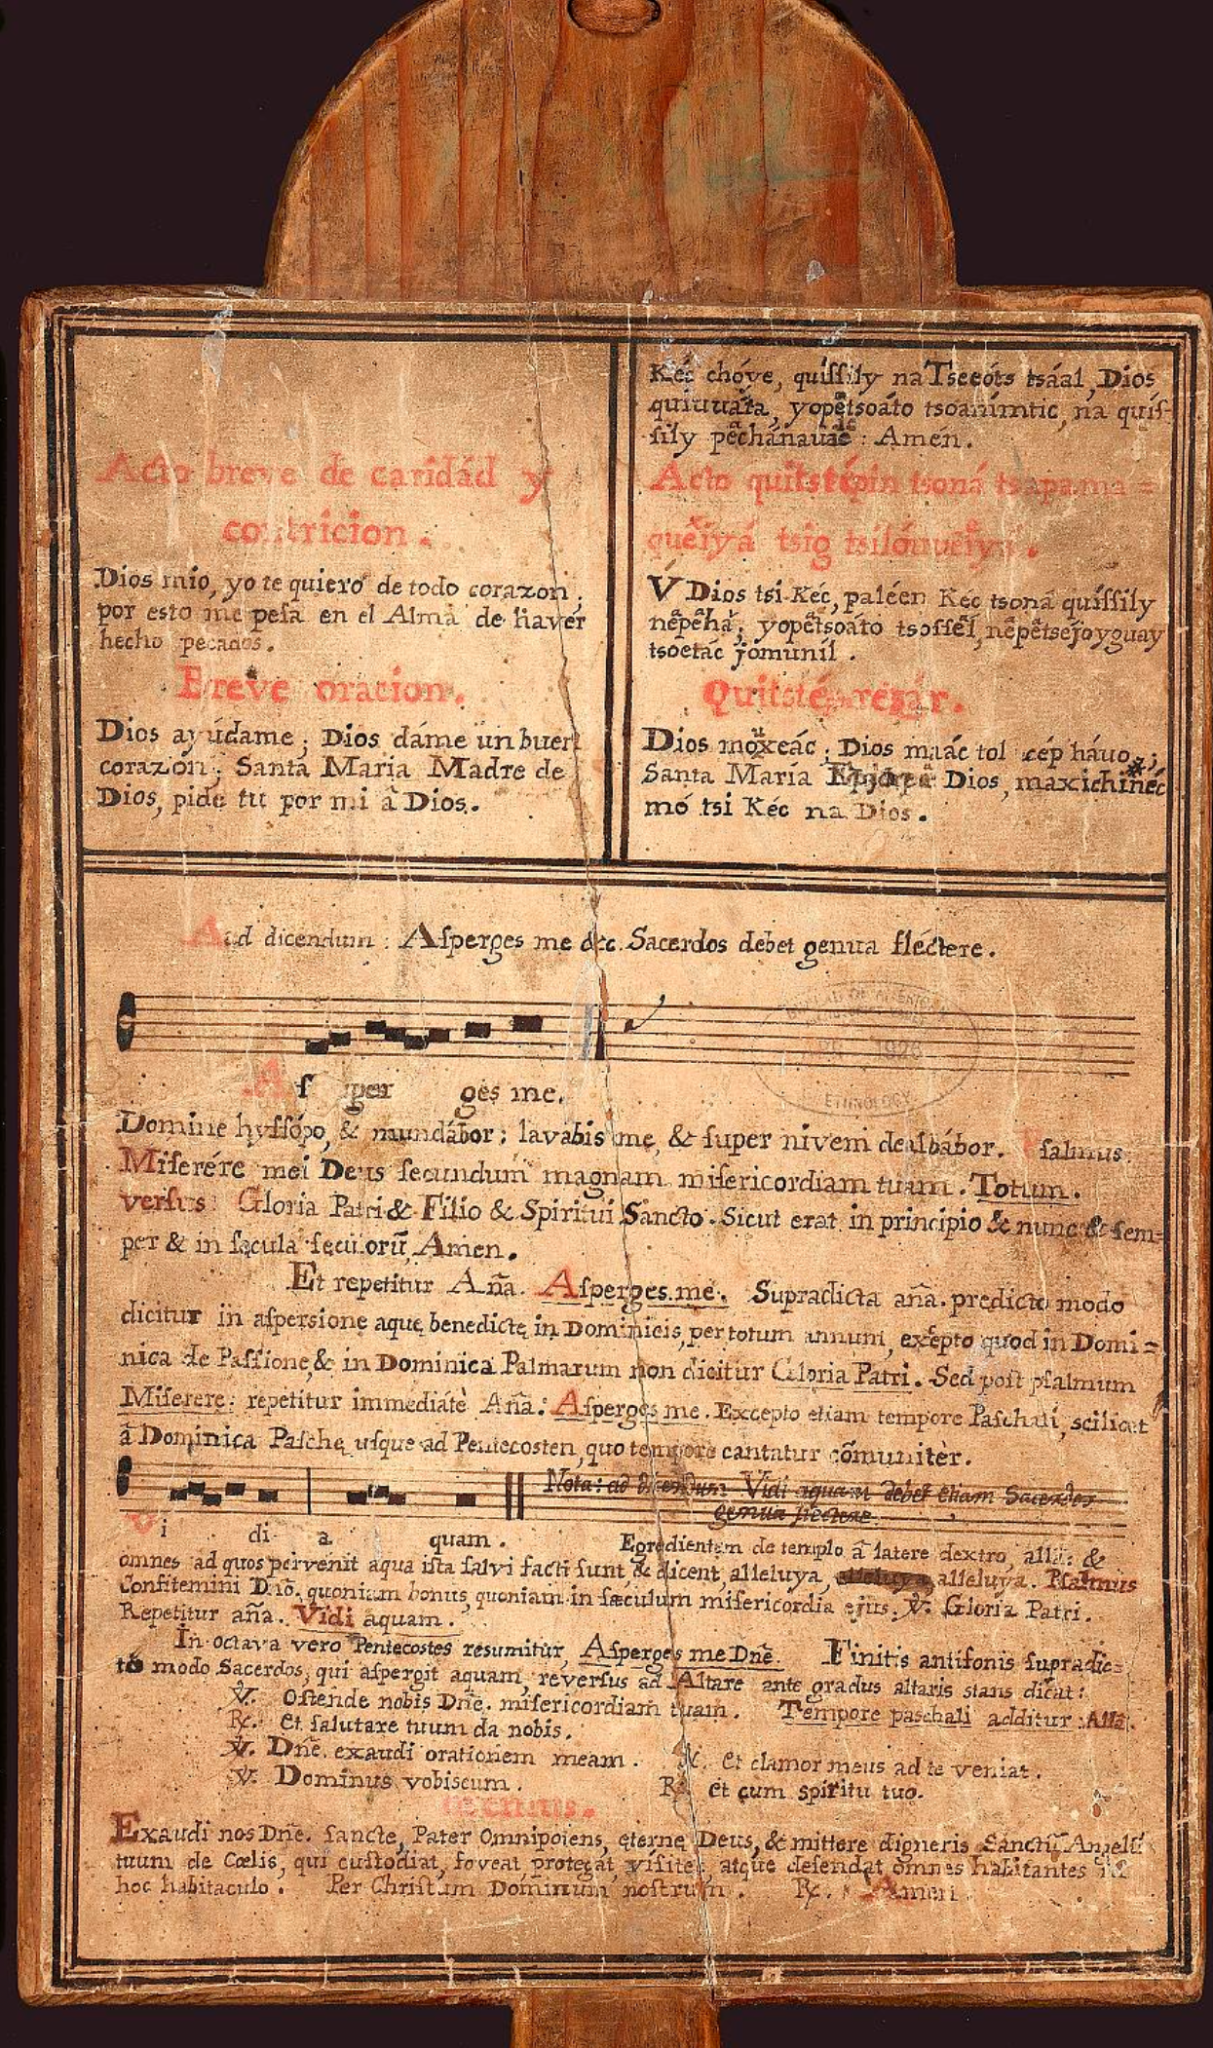 Acto breve de caridád y
contricion.
Dios mio, yo te quiero de todo corazon;
por esto me pesa en el Alma de haver
hecho pecados.
Breve oracion.
Dios ayúdame; Dios dáme un buen
corazón; Santa Maria Madre de
Dios, pide tu por mi â Dios.
Kéc chóye, quíſſily na Tsceóts tsáal, Dios
yopêtsoáto tsoanímtic, na quíſ-
ſily : Amén.
Acto quitstépin tsoná tsapama=
tsig
V Dios tsi Kéc, paléen Kéc tsoná quíſſily
yopêtsoáto
tsoetác jomuníl.
Quitstépin rezár.
Dios ; Dios maác tol cép háuo;
Santa María Dios,
mó tsi Kéc na Dios.
Ad dicendum: Aſperges me &c. Sacerdos debet genua fléctere.
Aſ per ges me.
Domine hyſſópo, & mundábor; lavabis me, & ſuper nivem dealbábor. Pſalmus.
Miſerére mei Deus ſecundum magnam miſericordiam tuam. Totum.
verſus Gloria Patri & Filio & Spiritui Sancto. Sicut erat in principio & nunc & ſem=
per & in ſęcula ſęculorũ, Amen.
Et repetitur Añã. Aſperges me. Supradicta añã. predicto modo
dicitur in aſpersione aquę benedictę in Dominicis, per totum annum, excepto quod in Domi=
nica de Paſſione, & in Dominica Palmarum non dicitur Gloria Patri. Sed poſt pſalmum
Miſerere: repetitur immediátè Añã: Aſperges me. Excepto etiam tempore Paſchali, scilicet
â Dominica Paſchę uſque ad Pentecosten, quo tempore cantatur cõmunitèr.
Nota: ad dicendum Vidi aquam debet etiam Sacerdos
genua flectere.
Vi di a quam. Egredientem de templo â latere dextro, allã: &
omnes ad quos pervenit aqua iſta ſalvi facti ſunt, & dicent, alleluya, alleluya, alleluya. Pſalmus
Confitemini Dnõ. quoniam bonus, quoniam in ſæculum miſericordia ejus. V. Gloria Patri.
Repetitur añã. Vidi aquam.
In octava vero Pentecostes resumitur, Aſperges me Dnẽ. Finitis antifonis ſupradic=
to modo Sacerdos, qui aſpergit aquam, reverſus ad Altare ante gradus altaris stans dicat:
V. Oſtende nobis Dnẽ. miſericordiam tuam. Tempore paschali additur: Allã.
R. Et ſalutare tuum da nobis.
V. Dnẽ. exaudi orationem meam. R. Et clamor meus ad te veniat.
V. Dominus vobiscum. R. Et cum spiritu tuo.
Exaudi nos Dnẽ. ſancte, Pater Omnipotens, ęterne Deus, & mittere digneris Sanctũ Angelũ
tuum de Cœlis, qui custodiat, foveat protegat, viſitet, atque defendat omnes habitantes in
hoc habitaculo. Per Chriſtum Dominum noſtrum. R. Amen